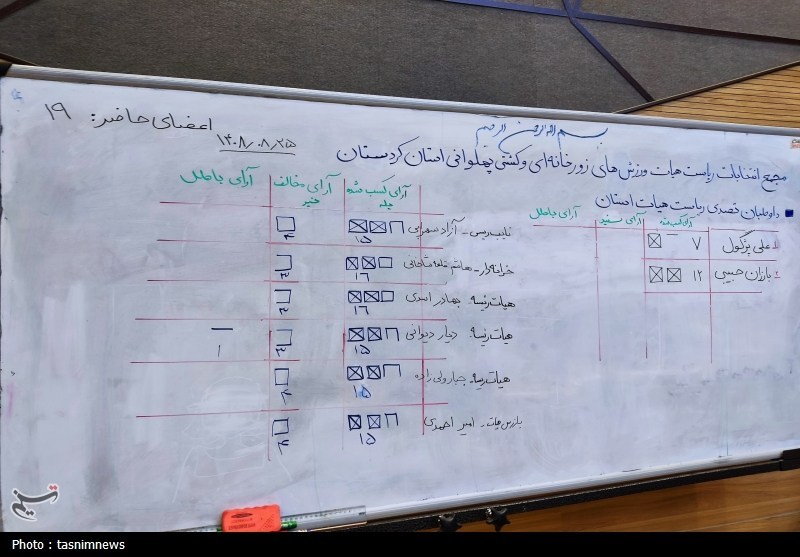 بسم الله الرحمن الرحیم
اعضای حاضر: ۱۹
۱۴۰۸/۰۸/۲۵
مجمع انتخابات ریاست هیات ورزش های زورخانه ای و کشتی پهلوانی استان کردستان
داوطلبان تصدی ریاست هیات استان
آرای باطل
علی پژگول ۷
بارزان حبیبی ۱۲
آرای کسب شده آرای مخالف آرای باطل
بله خیر
نایب رییس - آزاد سهرابی ۱۵ ۴
۱۶ ۳
هیات رئیسه بهادر اسدی ۱۶ ۳
هیات رئیسه دیار دیوانی ۱۵ ۳ ۱
هیات رئیسه جبار ولی زاده ۱۵ ۴
بازرس هیات - امیر احمدی ۱۵ ۴
تسنیم
Photo : tasnimnews